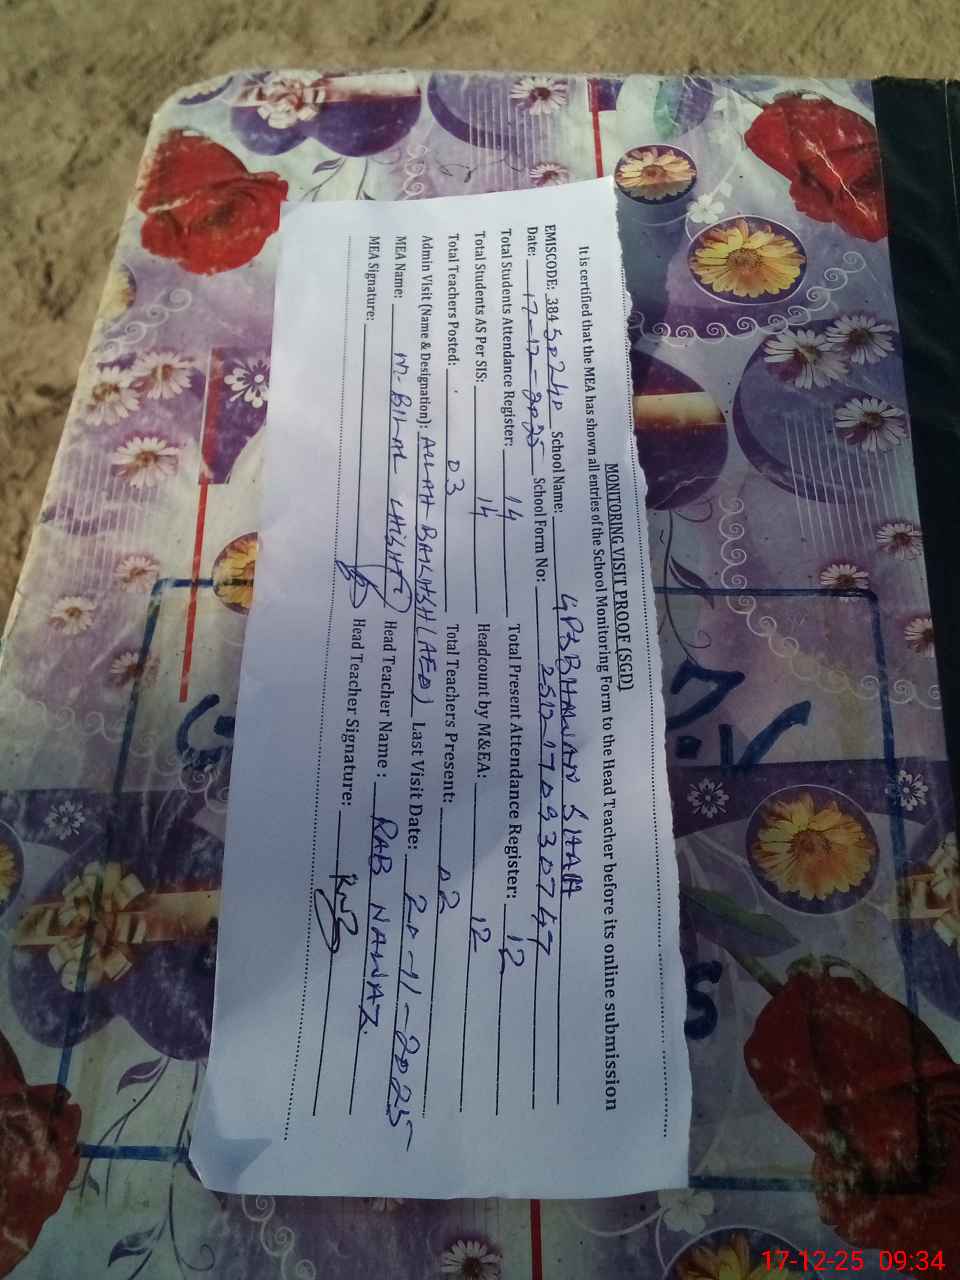 MONITORING VISIT PROOF (SGD)
It is certified that the MEA has shown all entries of the School Monitoring Form to the Head Teacher before its online submission
EMISCODE: 38450240 School Name: GPS BHAWAN SHAH
Date: 17-12-2025 School Form No: 2512170930747
Total Students Attendance Register: 14 Total Present Attendance Register: 12
Total Students AS Per SIS: 14 Headcount by M&EA: 12
Total Teachers Posted: 03 Total Teachers Present: 02
Admin Visit (Name & Designation): ALLAH BAKHSH (AEO) Last Visit Date: 20-11-2025
MEA Name: M. BILAL CHISHTI Head Teacher Name : RAB NAWAZ
MEA Signature: Head Teacher Signature:
17-12-25 09:34